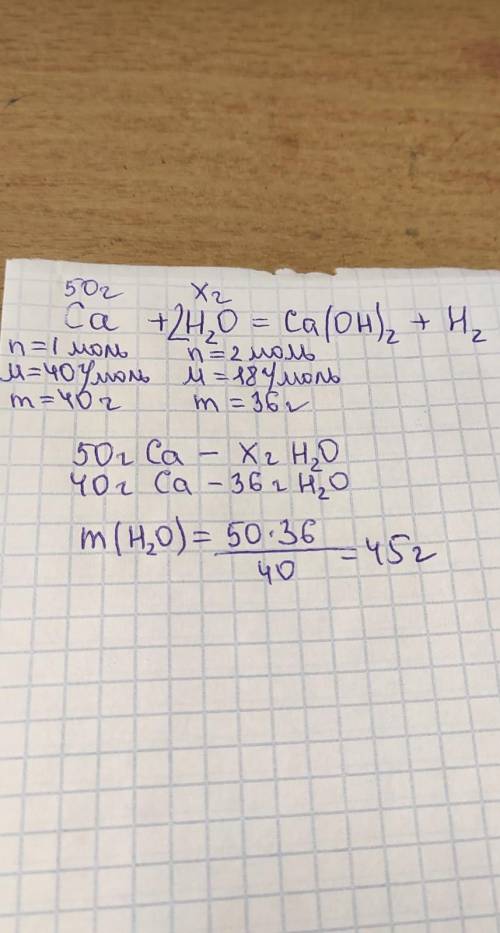 50г x г
Ca + 2H₂O = Ca(OH)₂ + H₂
n=1 моль n=2 моль
M=40 г/моль M=18 г/моль
m=40 г m=36 г
50г Ca – x г H₂O
40г Ca – 36г H₂O
m(H₂O) = 50·36 / 40 = 45г